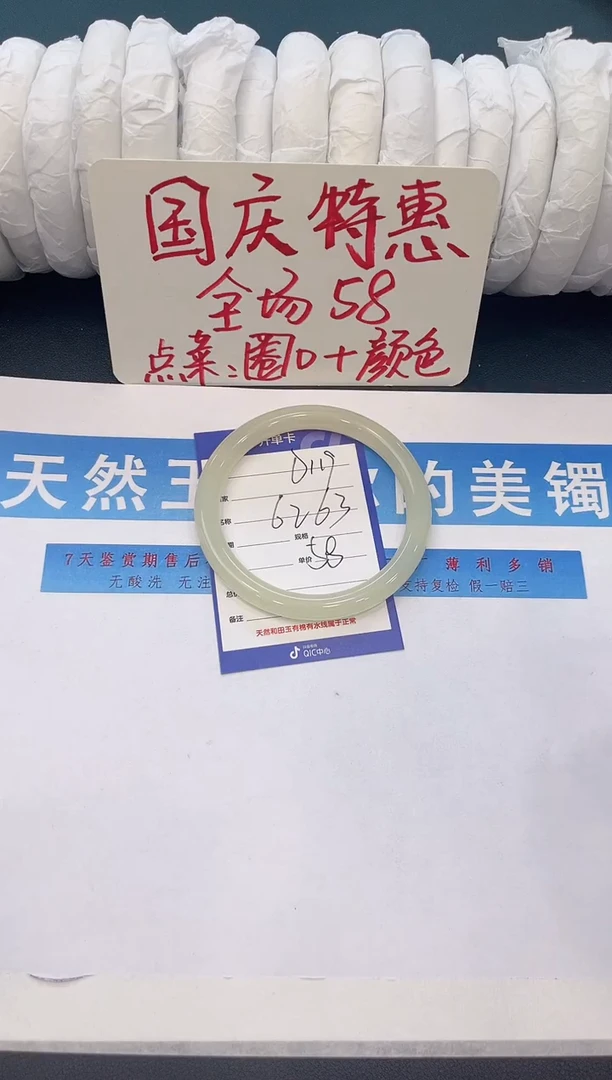 国庆特惠
全场58
点菜:圈口+颜色
开单卡
天然玉 的美镯
D119
6263
规格
单价 58
7天鉴赏期售后 薄利多销
无酸洗 无注 支持复检 假一赔三
备注
天然和田玉有棉有水线属于正常
QIC中心